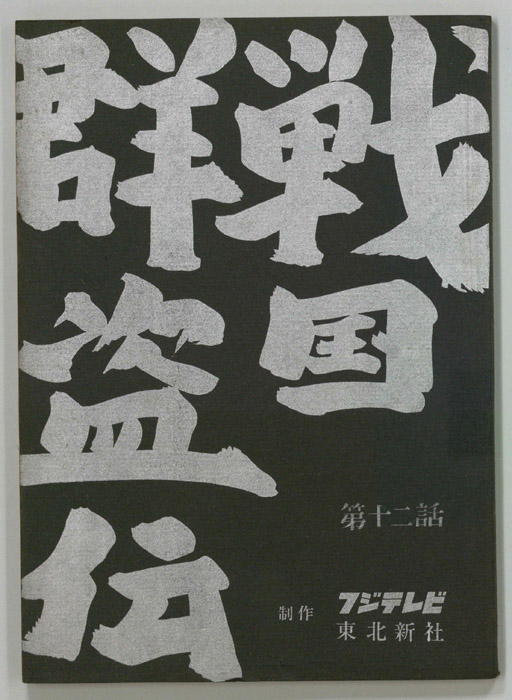 戦国
群盗伝
第十二話
制作
フジテレビ
東北新社